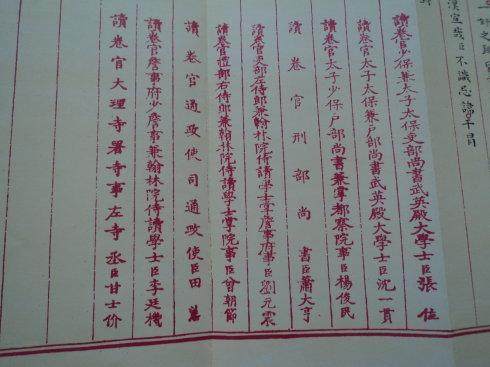 漢宣哉臣不識忌諱干冒
讀卷官少保兼太子太保吏部尚書武英殿大學士臣張位
讀卷官太子太保兼戶部尚書武英殿大學士臣沈一貫
讀卷官太子少保戶部尚書兼掌都察院事臣楊俊民
讀卷官刑部尚書臣蕭大亨
讀卷官吏部左侍郎兼翰林院侍讀學士掌詹事府事臣劉元震
讀卷官禮部右侍郎兼翰林院侍讀學士掌院事臣曾朝節
讀卷官通政使司通政使臣田蕙
讀卷官詹事府少詹事兼翰林院侍讀學士臣李廷機
讀卷官大理寺署寺事左寺丞臣甘士价